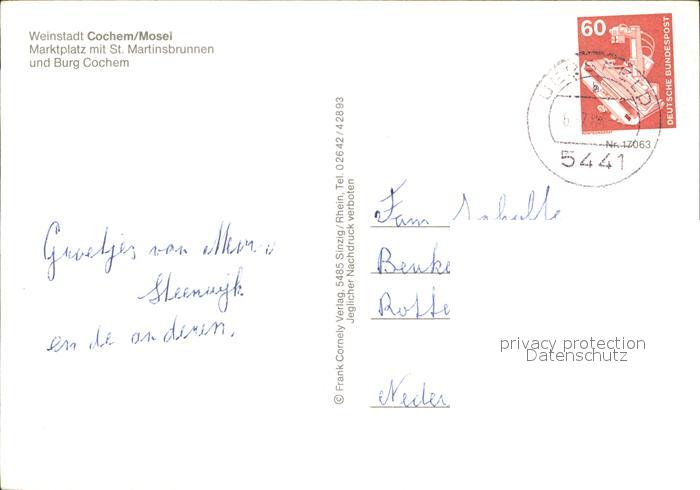 Weinstadt Cochem/Mosel
Marktplatz mit St. Martinsbrunnen
und Burg Cochem
60
DEUTSCHE BUNDESPOST
Nr. 17063
5441
© Frank Cornely Verlag, 5485 Sinzig/Rhein, Tel. 02642/42893
Jeglicher Nachdruck verboten
Groetjes van
Steenwijk
en de anderen.
Fam Scholte
Beuke
Rotte
Neder
privacy protection
Datenschutz